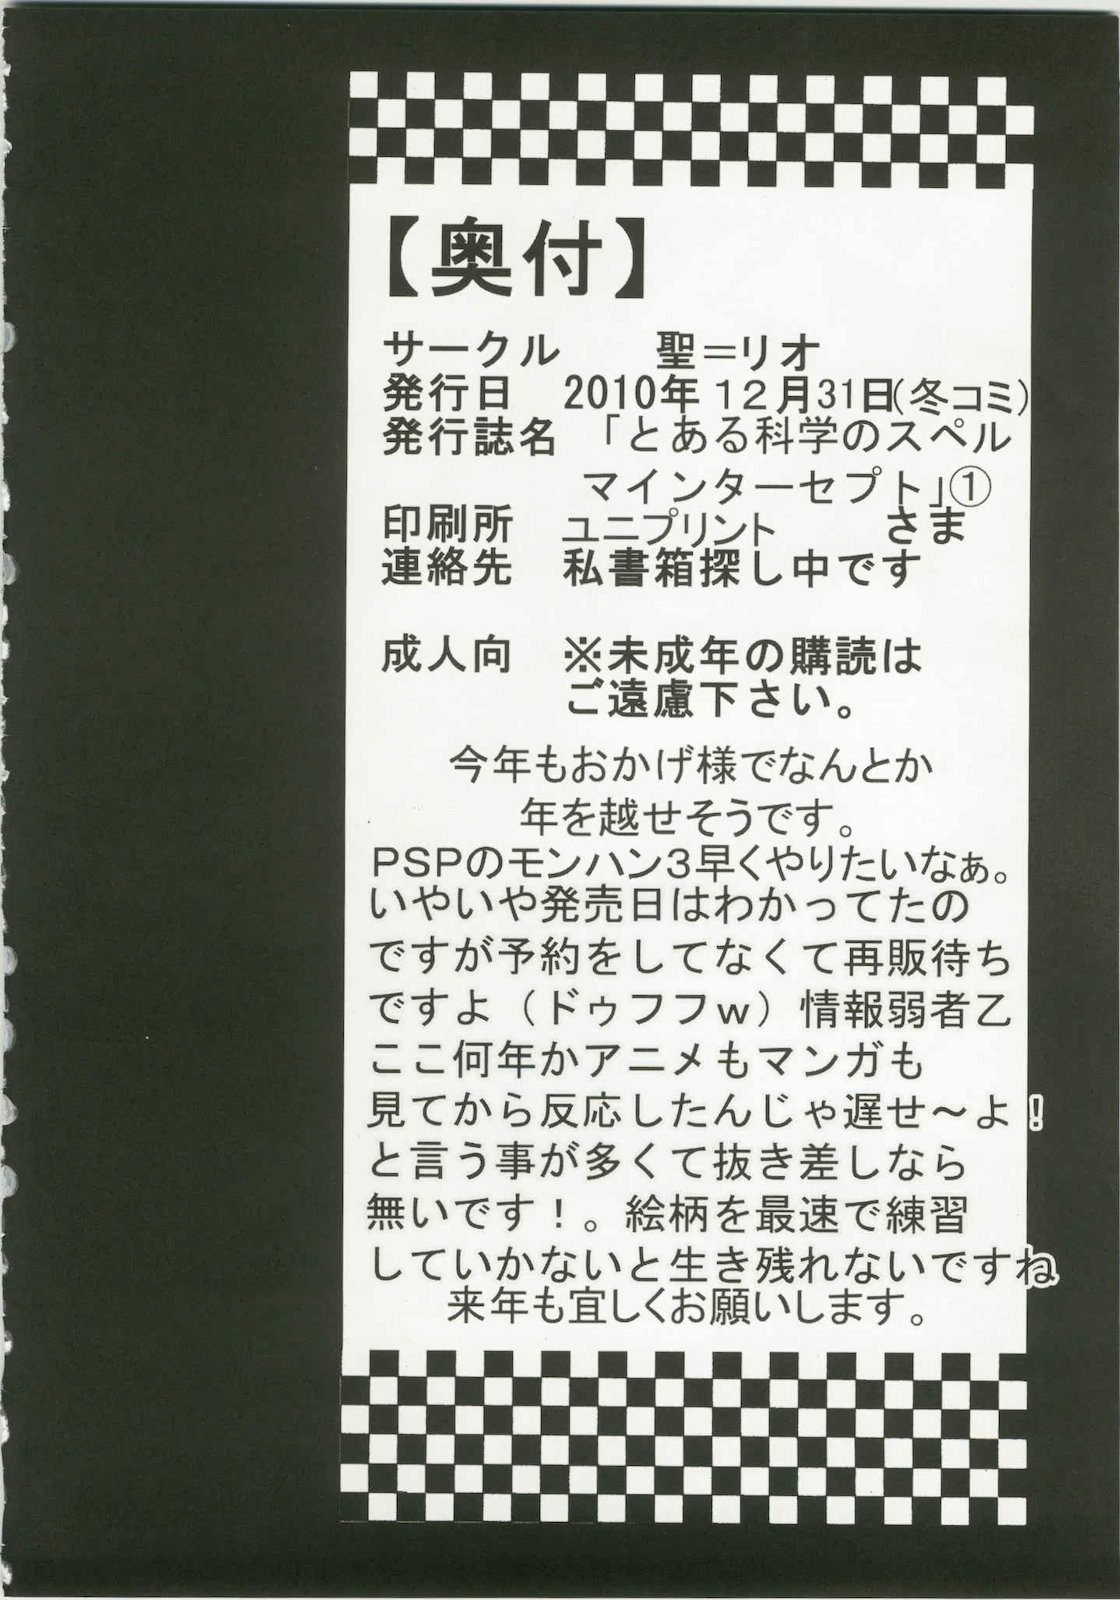 【奥付】
サークル　聖＝リオ
発行日　2010年１２月31日(冬コミ)
発行誌名　「とある科学のスペル
マインターセプト」①
印刷所　ユニプリント　さま
連絡先　私書箱探し中です
成人向　※未成年の購読は
ご遠慮下さい。
今年もおかげ様でなんとか
年を越せそうです。
PSPのモンハン３早くやりたいなぁ。
いやいや発売日はわかってたの
ですが予約をしてなくて再販待ち
ですよ（ドゥフフｗ）情報弱者乙
ここ何年かアニメもマンガも
見てから反応したんじゃ遅せ～よ！
と言う事が多くて抜き差しなら
無いです！。絵柄を最速で練習
していかないと生き残れないですね
来年も宜しくお願いします。